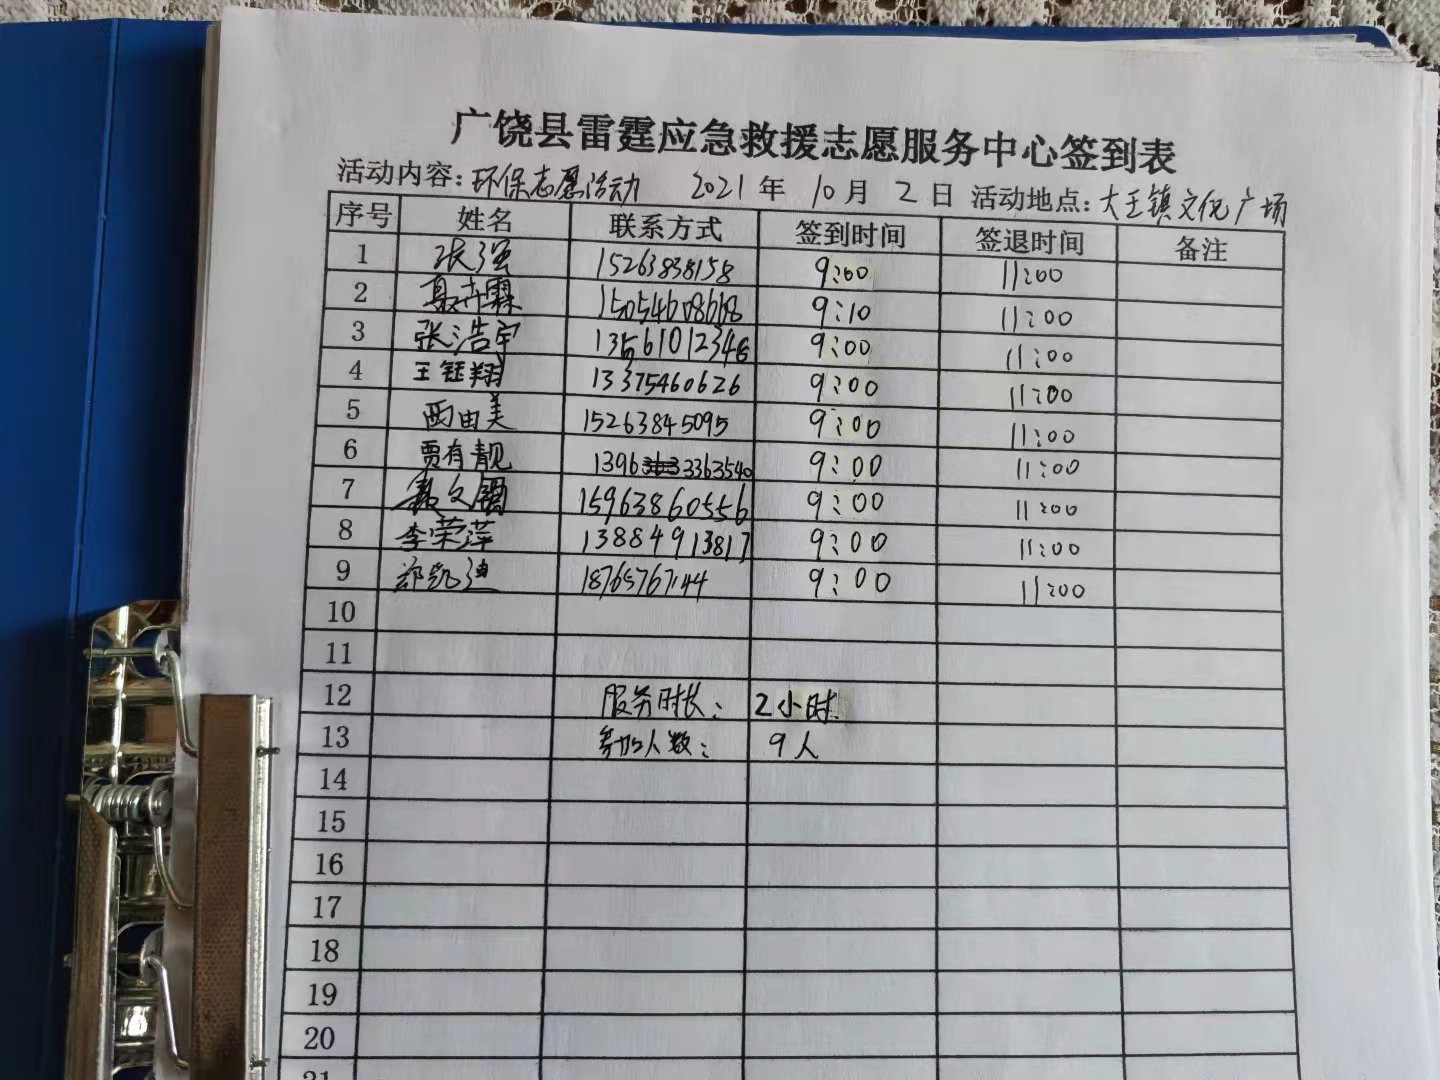 广饶县雷霆应急救援志愿服务中心签到表
活动内容：环保志愿活动 2021年 10月 2日 活动地点：大王镇文化广场
序号 姓名 联系方式 签到时间 签退时间 备注
1 张强 15263838158 9:00 11:00
2 聂卉霖 15054608668 9:10 11:00
3 张浩宇 13561012346 9:00 11:00
4 王钰翔 13375460626 9:00 11:00
5 西由美 15263845095 9:00 11:00
6 贾有靓 1396 3363540 9:00 11:00
7 15963860556 9:00 11:00
8 李荣萍 13884913817 9:00 11:00
9 郑凯迪 18765767144 9:00 11:00
10
11
12 服务时长： 2小时
13 参加人数： 9人
14
15
16
17
18
19
20
21